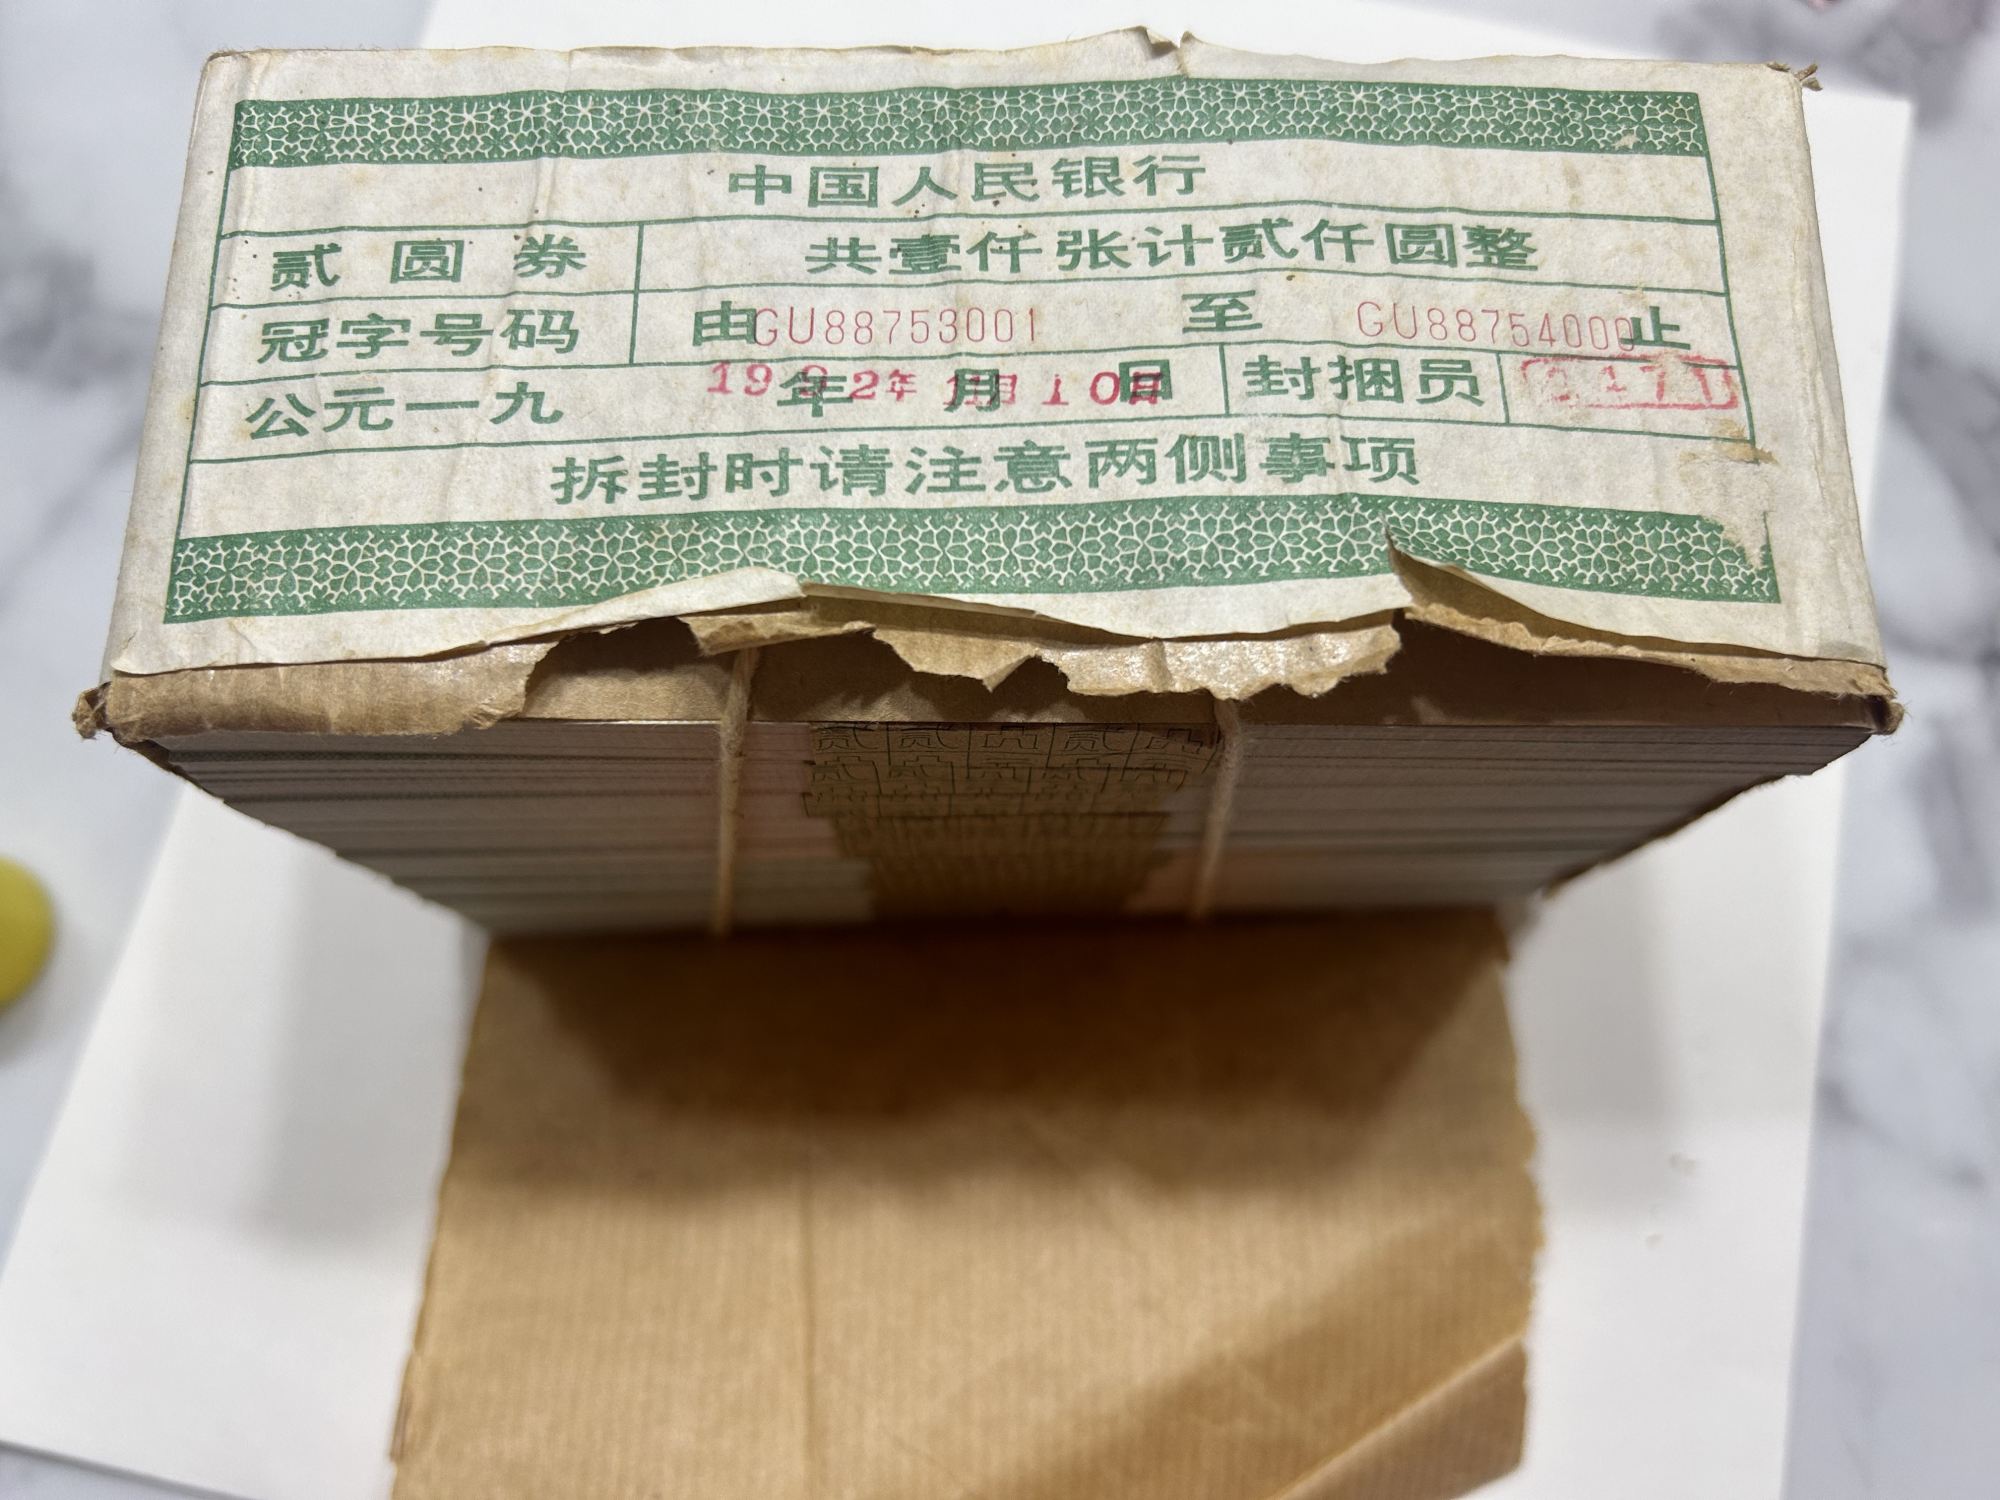 中国人民银行
贰圆券 共壹仟张计贰仟圆整
冠字号码 由GU88753001 至 GU88754000止
公元一九 年 月 日 封捆员
1992年 月10日
拆封时请注意两侧事项
贰 贰 贰